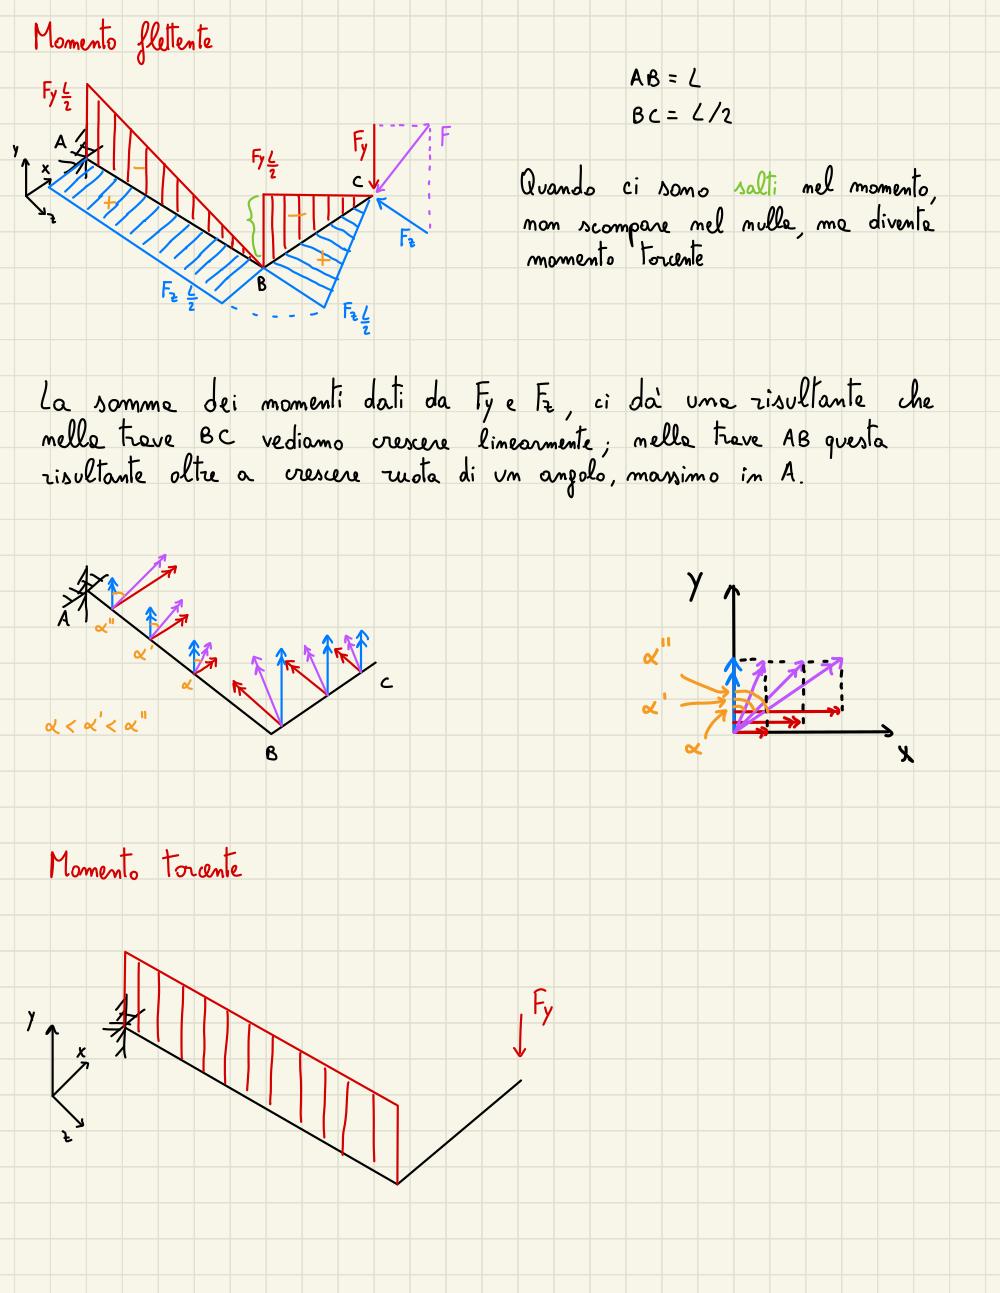 Momento flettente
AB = L
BC = L/2
Fy L/2
A
y
x
z
Fy L/2
Fy
F
C
Fz
B
Fz L/2
Fz L/2
Quando ci sono salti nel momento,
non scompare nel nulla, ma diventa
momento torcente
La somma dei momenti dati da Fy e Fz, ci dà una risultante che
nella trave BC vediamo crescere linearmente; nella trave AB questa
risultante oltre a crescere ruota di un angolo, massimo in A.
A
α''
α'
α
C
B
α < α' < α''
y
α''
α'
α
x
Momento torcente
Fy
y
x
z